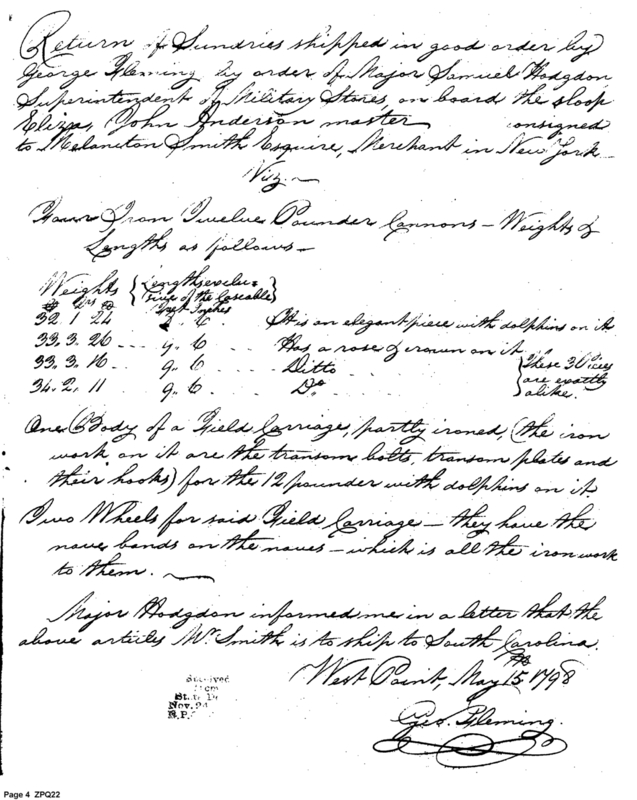 Return of Sundries shipped in good order by
George Fleming by order of Major Samuel Hodgdon
Superintendent of Military Stores, on board the sloop
Eliza, John Anderson master consigned
to Melancton Smith Esquire, Merchant in New York
Viz.
Four Iron Twelve Pounder Cannons – Weights &
Lengths as follows –
Weights { Lengths exclu= }
sive of the Cascabel
Qrs Feet Inches
32. 1. 24 6 It is an elegant piece with dolphins on it
33. 3. 26 9. 6 Has a rose & crown on it
33. 3. 16 9. 6 Ditto { These 3 Pieces
34. 2. 11 9. 6 Do are exactly
alike.
One Body of a Field Carriage, partly ironed, (the iron
work on it are the transom bolts, transom plates and
their hooks) for the 12 pounder with dolphins on it
Two Wheels for said Field Carriage – they have the
nave bands on the naves – which is all the iron work
to them.
Major Hodgdon informed me in a letter that the
above articles Mr Smith is to ship to South Carolina.
West Point, May 15th 1798
Geo. Fleming.
from
Nov. 24
R.P.
Page 4 ZPQ22